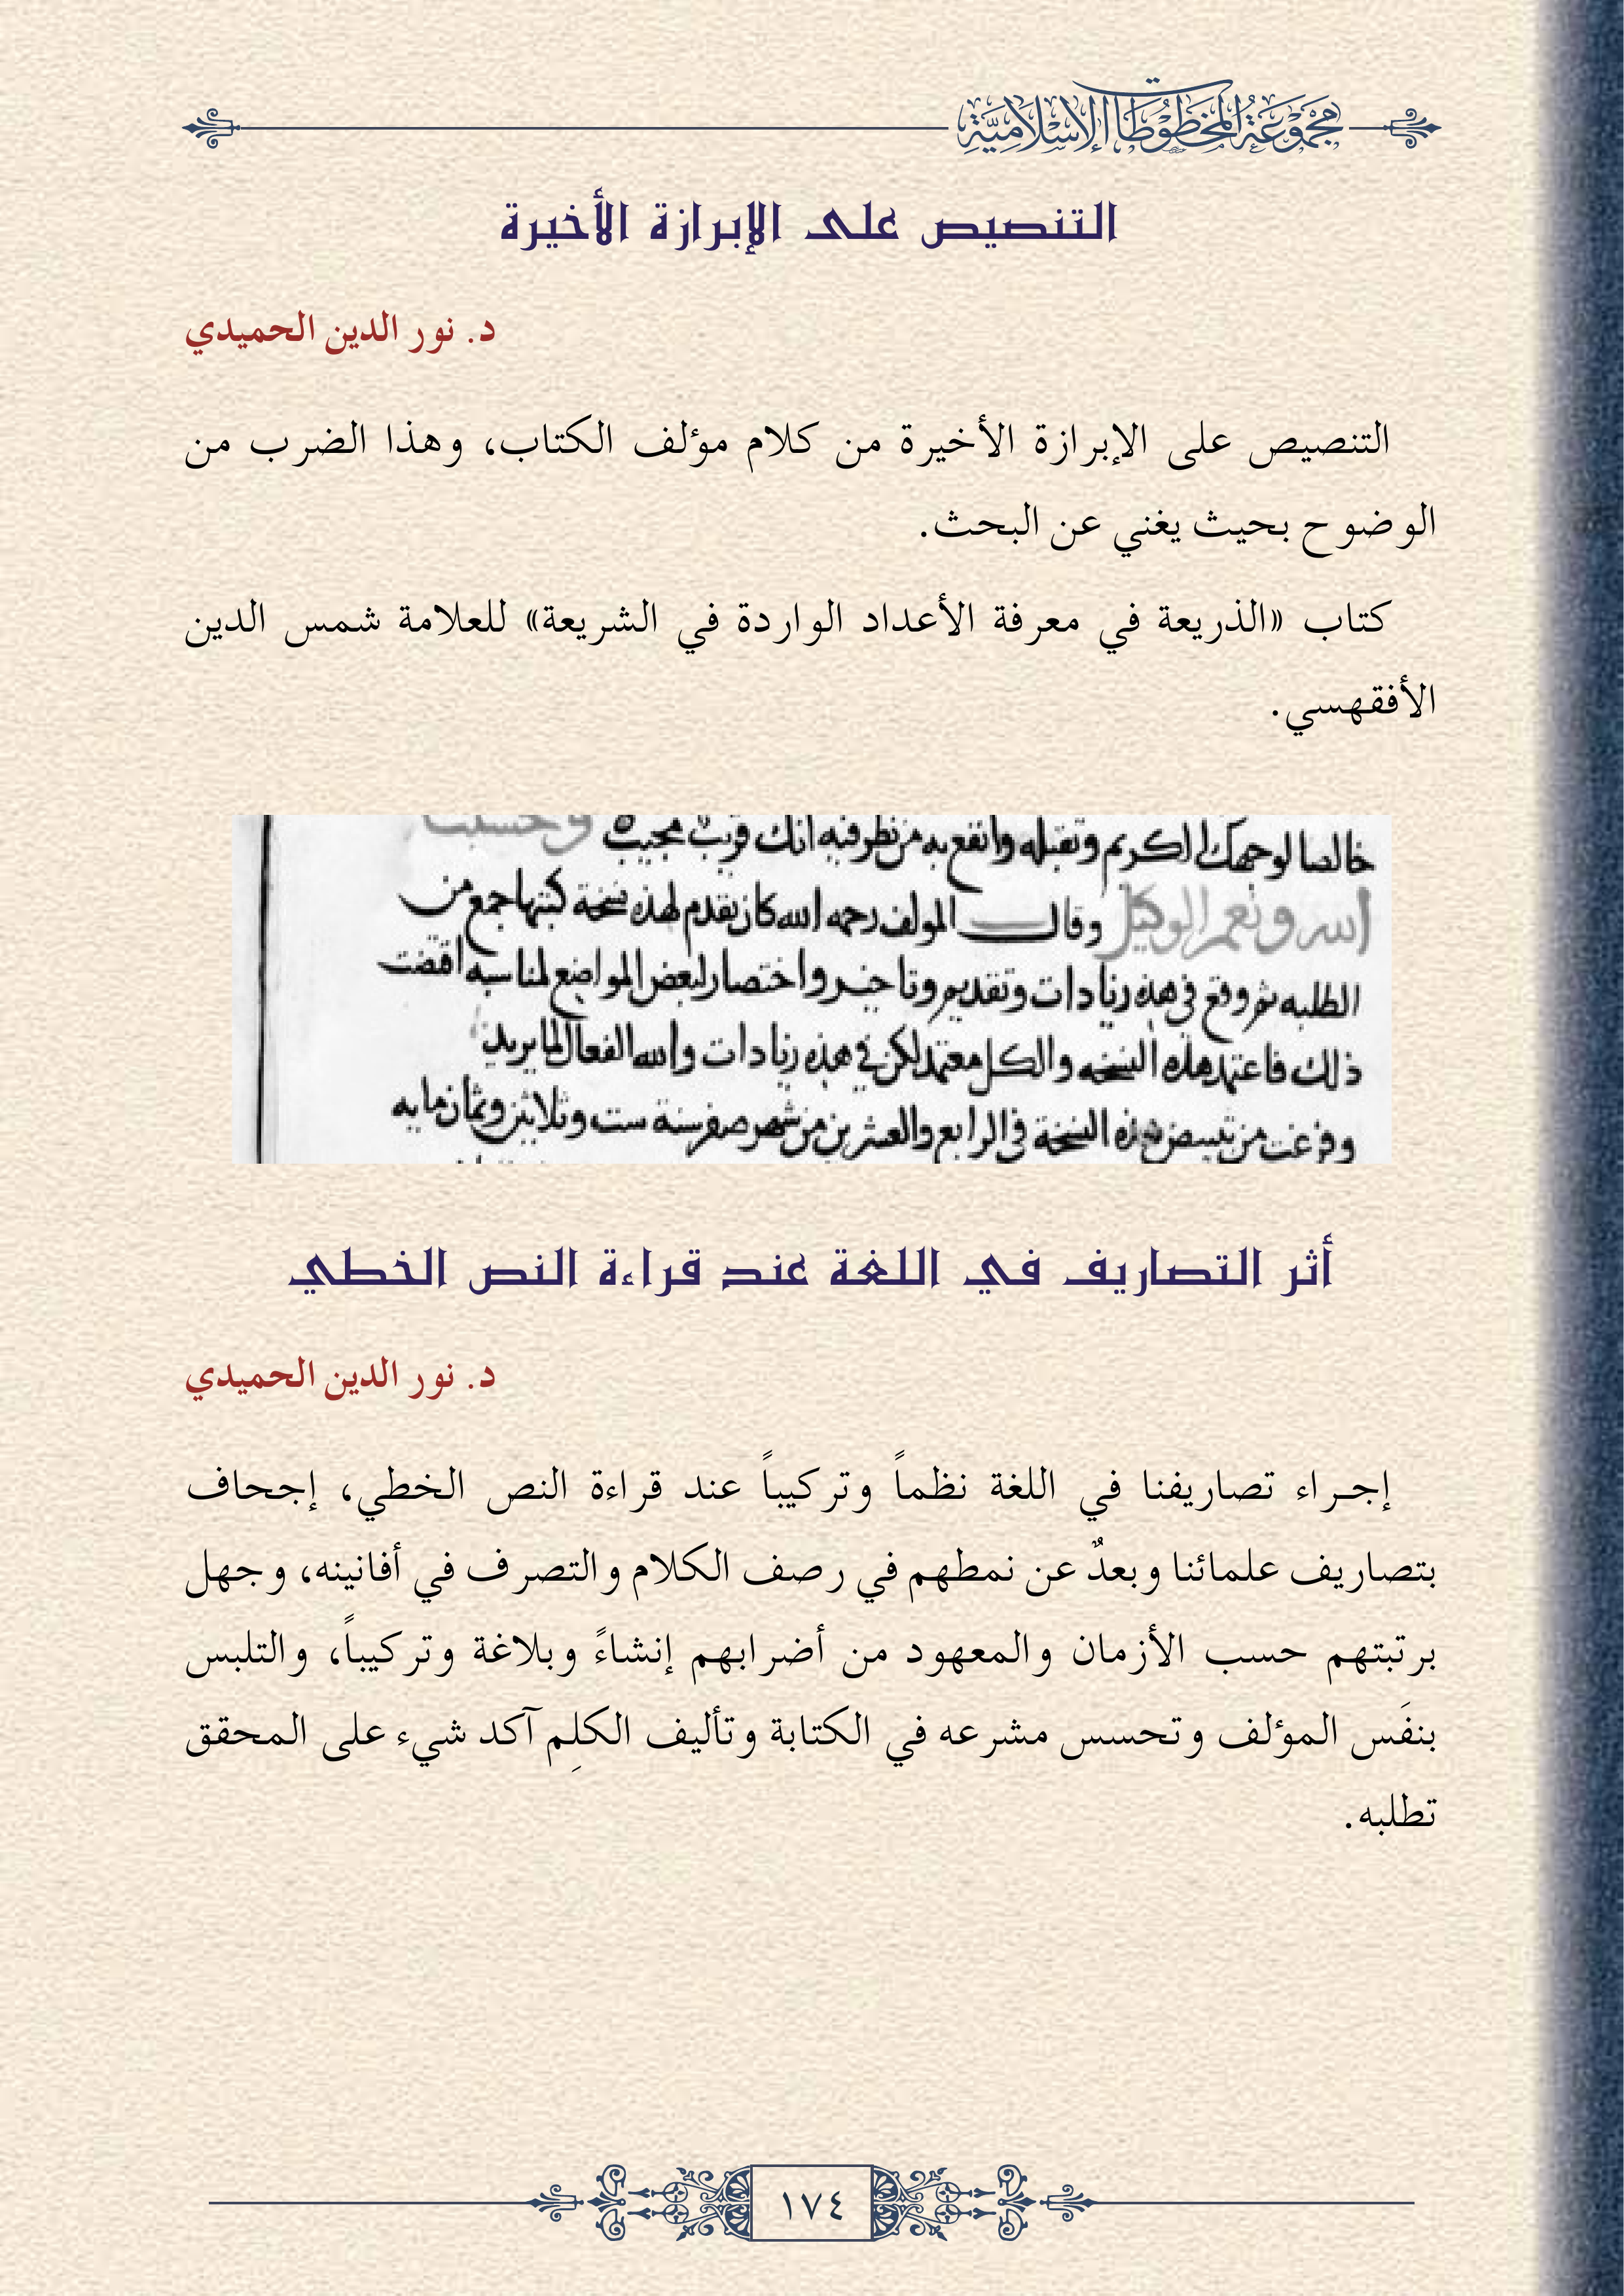 مجموعة المخطوطات الإسلامية
التنصيص على الإبرازة الأخيرة
د. نور الدين الحميدي
التنصيص على الإبرازة الأخيرة من كلام مؤلف الكتاب، وهذا الضرب من
الوضوح بحيث يغني عن البحث.
كتاب «الذريعة في معرفة الأعداد الواردة في الشريعة» للعلامة شمس الدين
الأفقهسي.
خالصا لوجهك الكريم وتقبله وانفع به من نظر فيه انك قريب مجيب وحسبنا
الله ونعم الوكيل وقال المولف رحمه الله كان تقدم لهذه نسخة كتبها جمع من
الطلبه ثم وقع في هذه زيادات وتقديم وتاخير واختصار لبعض المواضع لمناسبه اقتضت
ذلك فاعتمد هذه النسخه والكل معتمد لكن في هذه زيادات والله الفعال لما يريد
وفرغت من تبييض هذه النسخة في الرابع والعشرين من شهر صفر سنة ست وثلاثين وثمان مايه
أثر التصاريف في اللغة عند قراءة النص الخطي
د. نور الدين الحميدي
إجراء تصاريفنا في اللغة نظماً وتركيباً عند قراءة النص الخطي، إجحاف
بتصاريف علمائنا وبعدٌ عن نمطهم في رصف الكلام والتصرف في أفانينه، وجهل
برتبتهم حسب الأزمان والمعهود من أضرابهم إنشاءً وبلاغة وتركيباً، والتلبس
بنفَس المؤلف وتحسس مشرعه في الكتابة وتأليف الكلِم آكد شيء على المحقق
تطلبه.
١٧٤